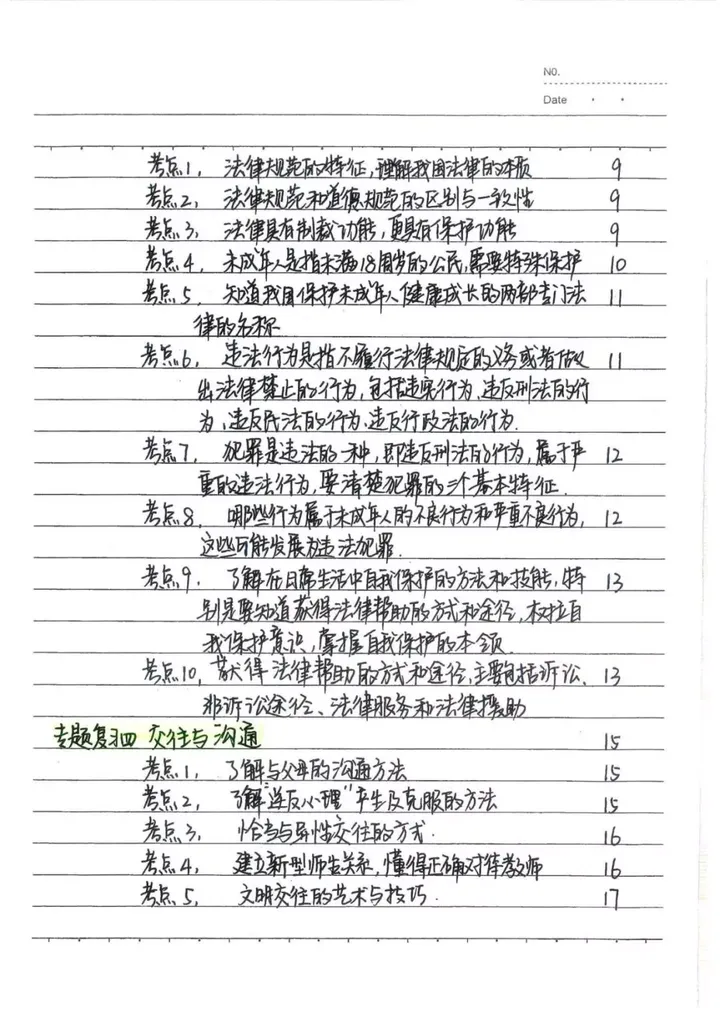 NO.
Date
考点1, 法律规范的特征,理解我国法律的本质 9
考点2, 法律规范和道德规范的区别与一致性 9
考点3, 法律具有制裁功能,更具有保护功能 9
考点4, 未成年人是指未满18周岁的公民,需要特殊保护 10
考点5, 知道我国保护未成年人健康成长的两部专门法 11
律的名称
考点6, 违法行为是指不履行法律规定的义务或者做 11
出法律禁止的行为,包括违宪行为、违反刑法的行
为、违反民法的行为、违反行政法的行为.
考点7, 犯罪是违法的一种,即违反刑法的行为,属于严 12
重的违法行为,要清楚犯罪的三个基本特征.
考点8, 哪些行为属于未成年人的不良行为和严重不良行为, 12
这些可能发展为违法犯罪.
考点9. 了解在日常生活中自我保护的方法和技能,特 13
别是要知道获得法律帮助的方式和途径,树立自
我保护意识,掌握自我保护的本领.
考点10, 获得法律帮助的方式和途径,主要包括诉讼、 13
非诉讼途径、法律服务和法律援助
专题复习四 交往与沟通 15
考点1, 了解与父母的沟通方法 15
考点2, 了解"逆反心理"产生及克服的方法 15
考点3, 恰当与异性交往的方式. 16
考点4, 建立新型师生关系,懂得正确对待教师 16
考点5, 文明交往的艺术与技巧. 17